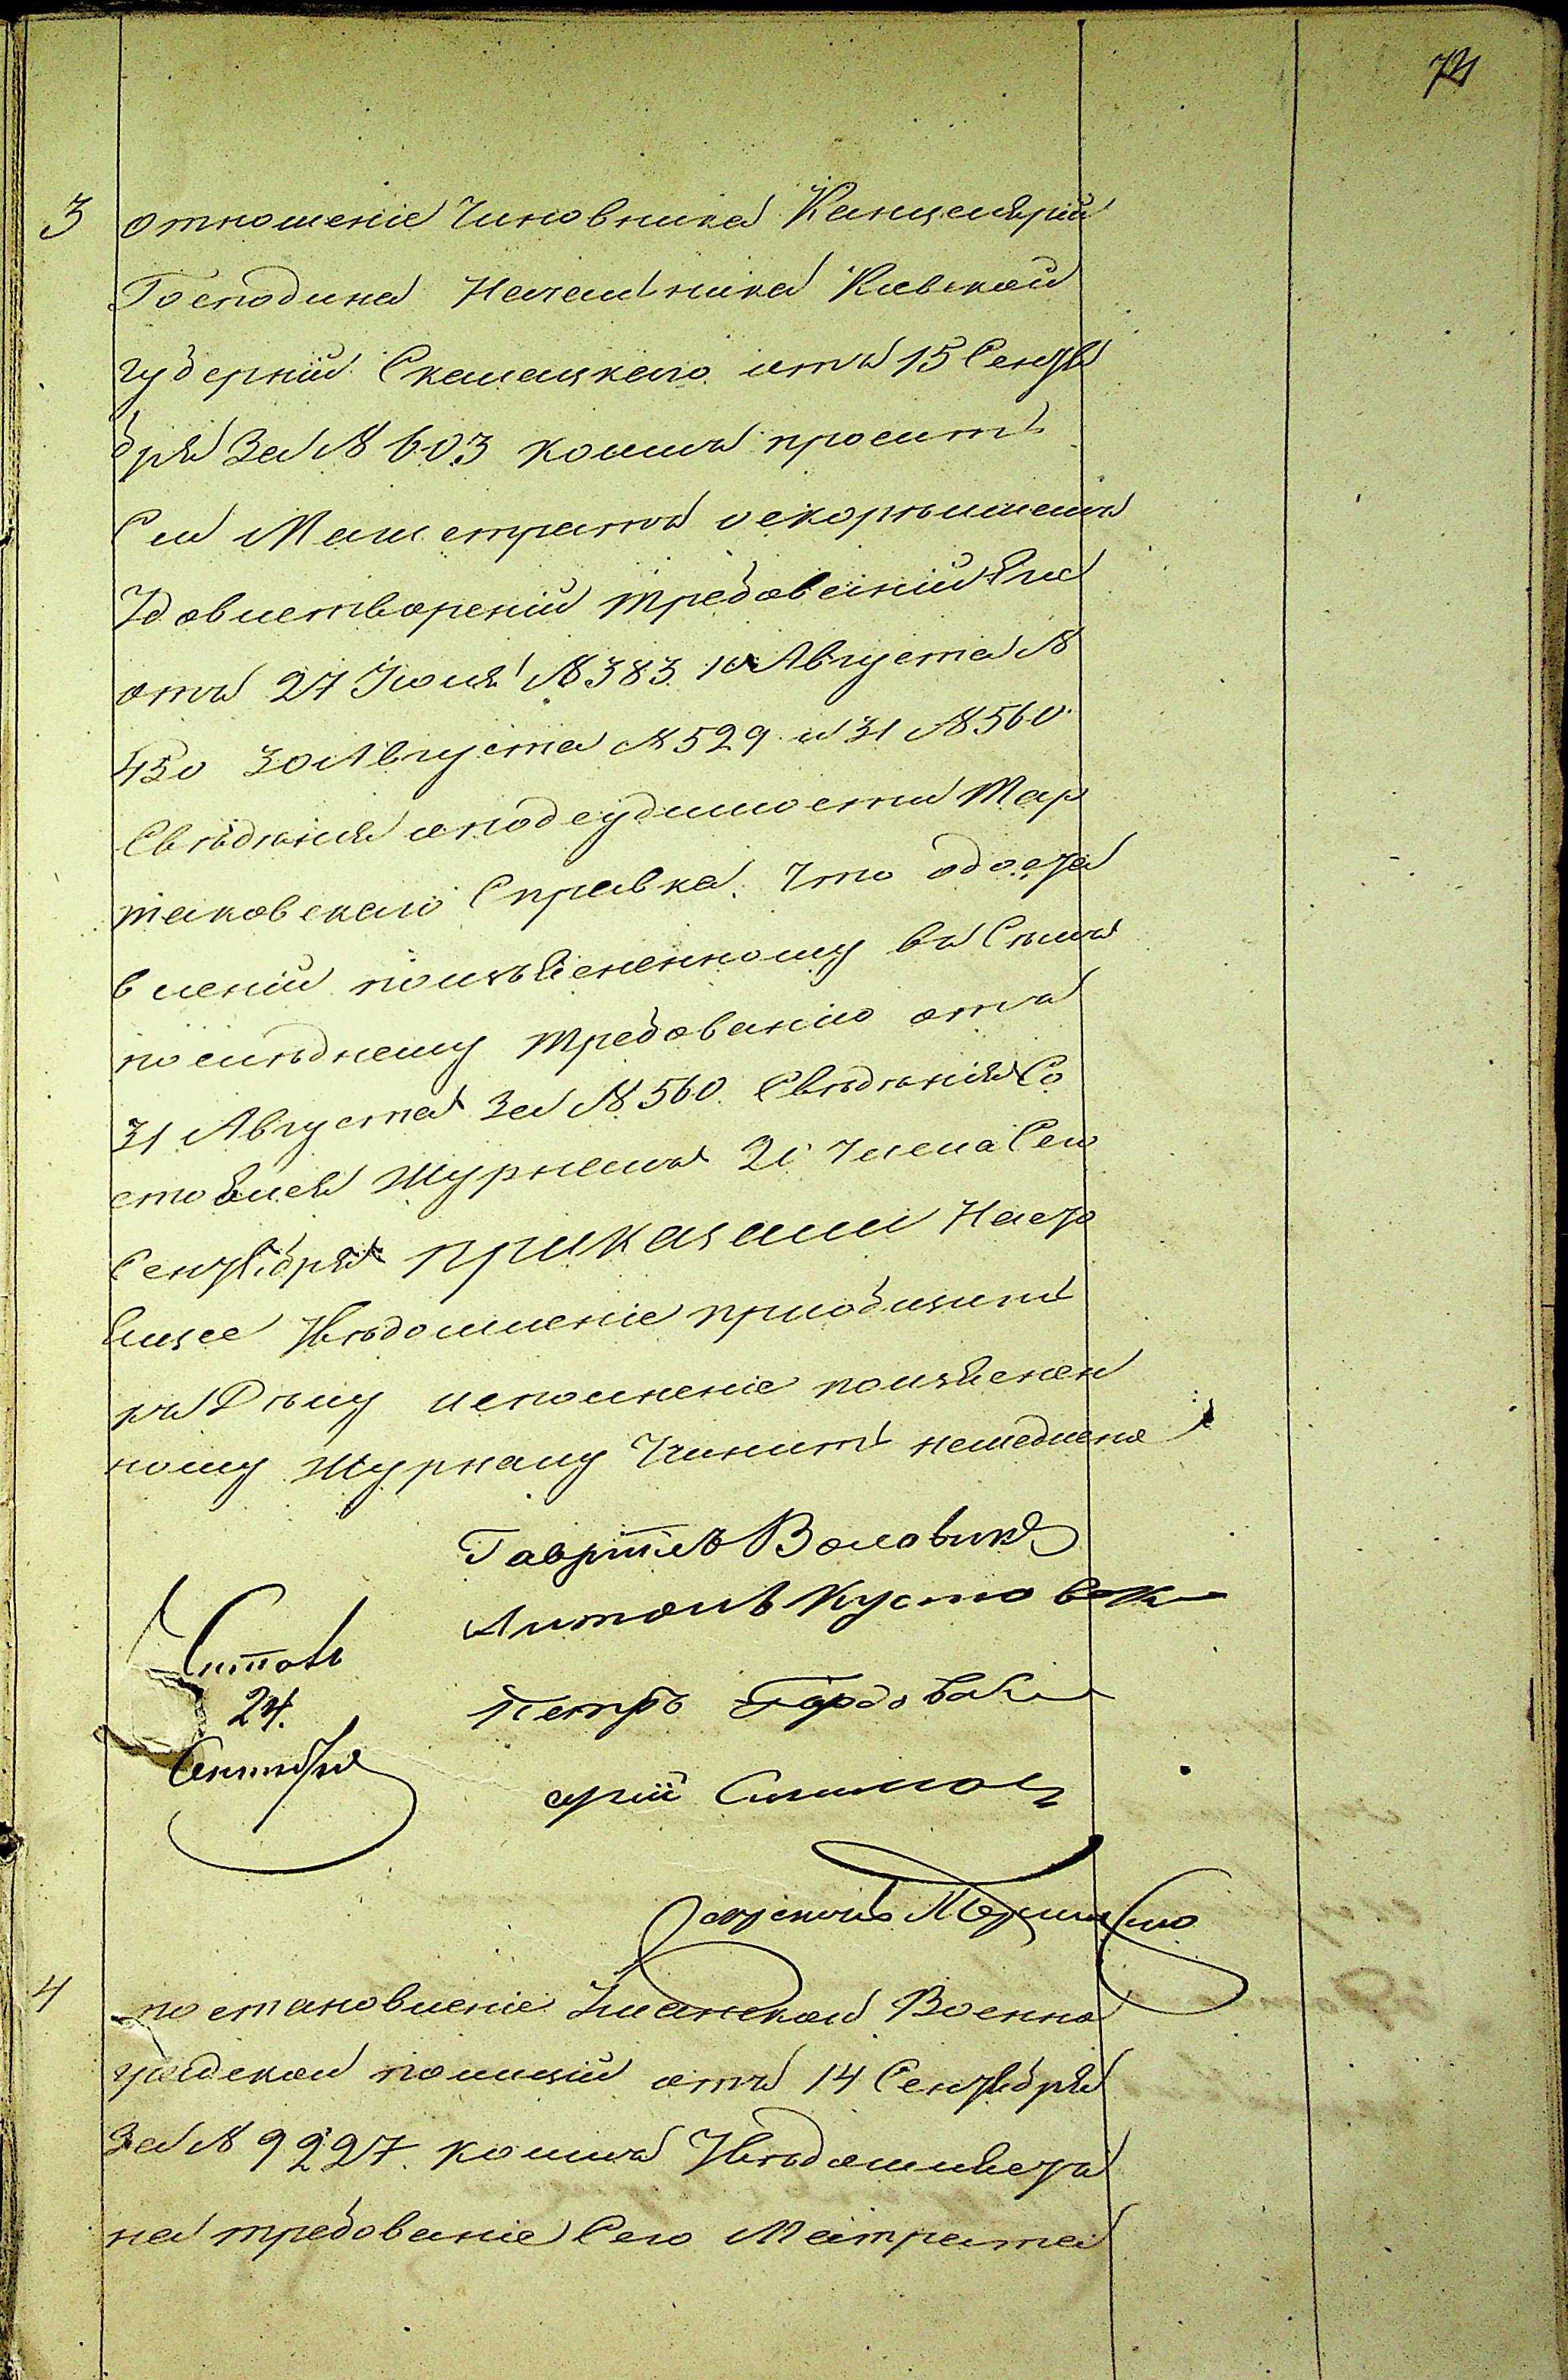 3 отношеніе Чиновника Канцеляріи
Господина Начальника Киевской
губерніи отъ 15 Сентя
бря За № 603 коимъ проситъ
Сей Магистратъ оскорѣйшемъ
Удовлетвореніи требованій Его
отъ 27 Іюля № 383 10 Августа №
450 30 Августа № 529 и 31 № 560
Свѣдѣнія оподсудимости Мар
таковскаго Справка. Что одоста
вленіи поизъясненному въ Сѣмъ
послѣднему требованію отъ
31 Августа За № 560 Свѣдѣнія Со
стоялся Журналъ Числа Сего
Сентября приказали Насто
ящее Увѣдомленіе приобщить
къ Дѣлу исполненіе поизъяснен
ному Журналу Учинить немедленно
Гавріилъ Воловикъ
Антонъ
Петръ
Читалъ
24.
4 постановленіе Уманской Военно
градской полиціи отъ 14 Сентября
За № 9227. коимъ Увѣдомляетъ
на требованіе Сего Матрата